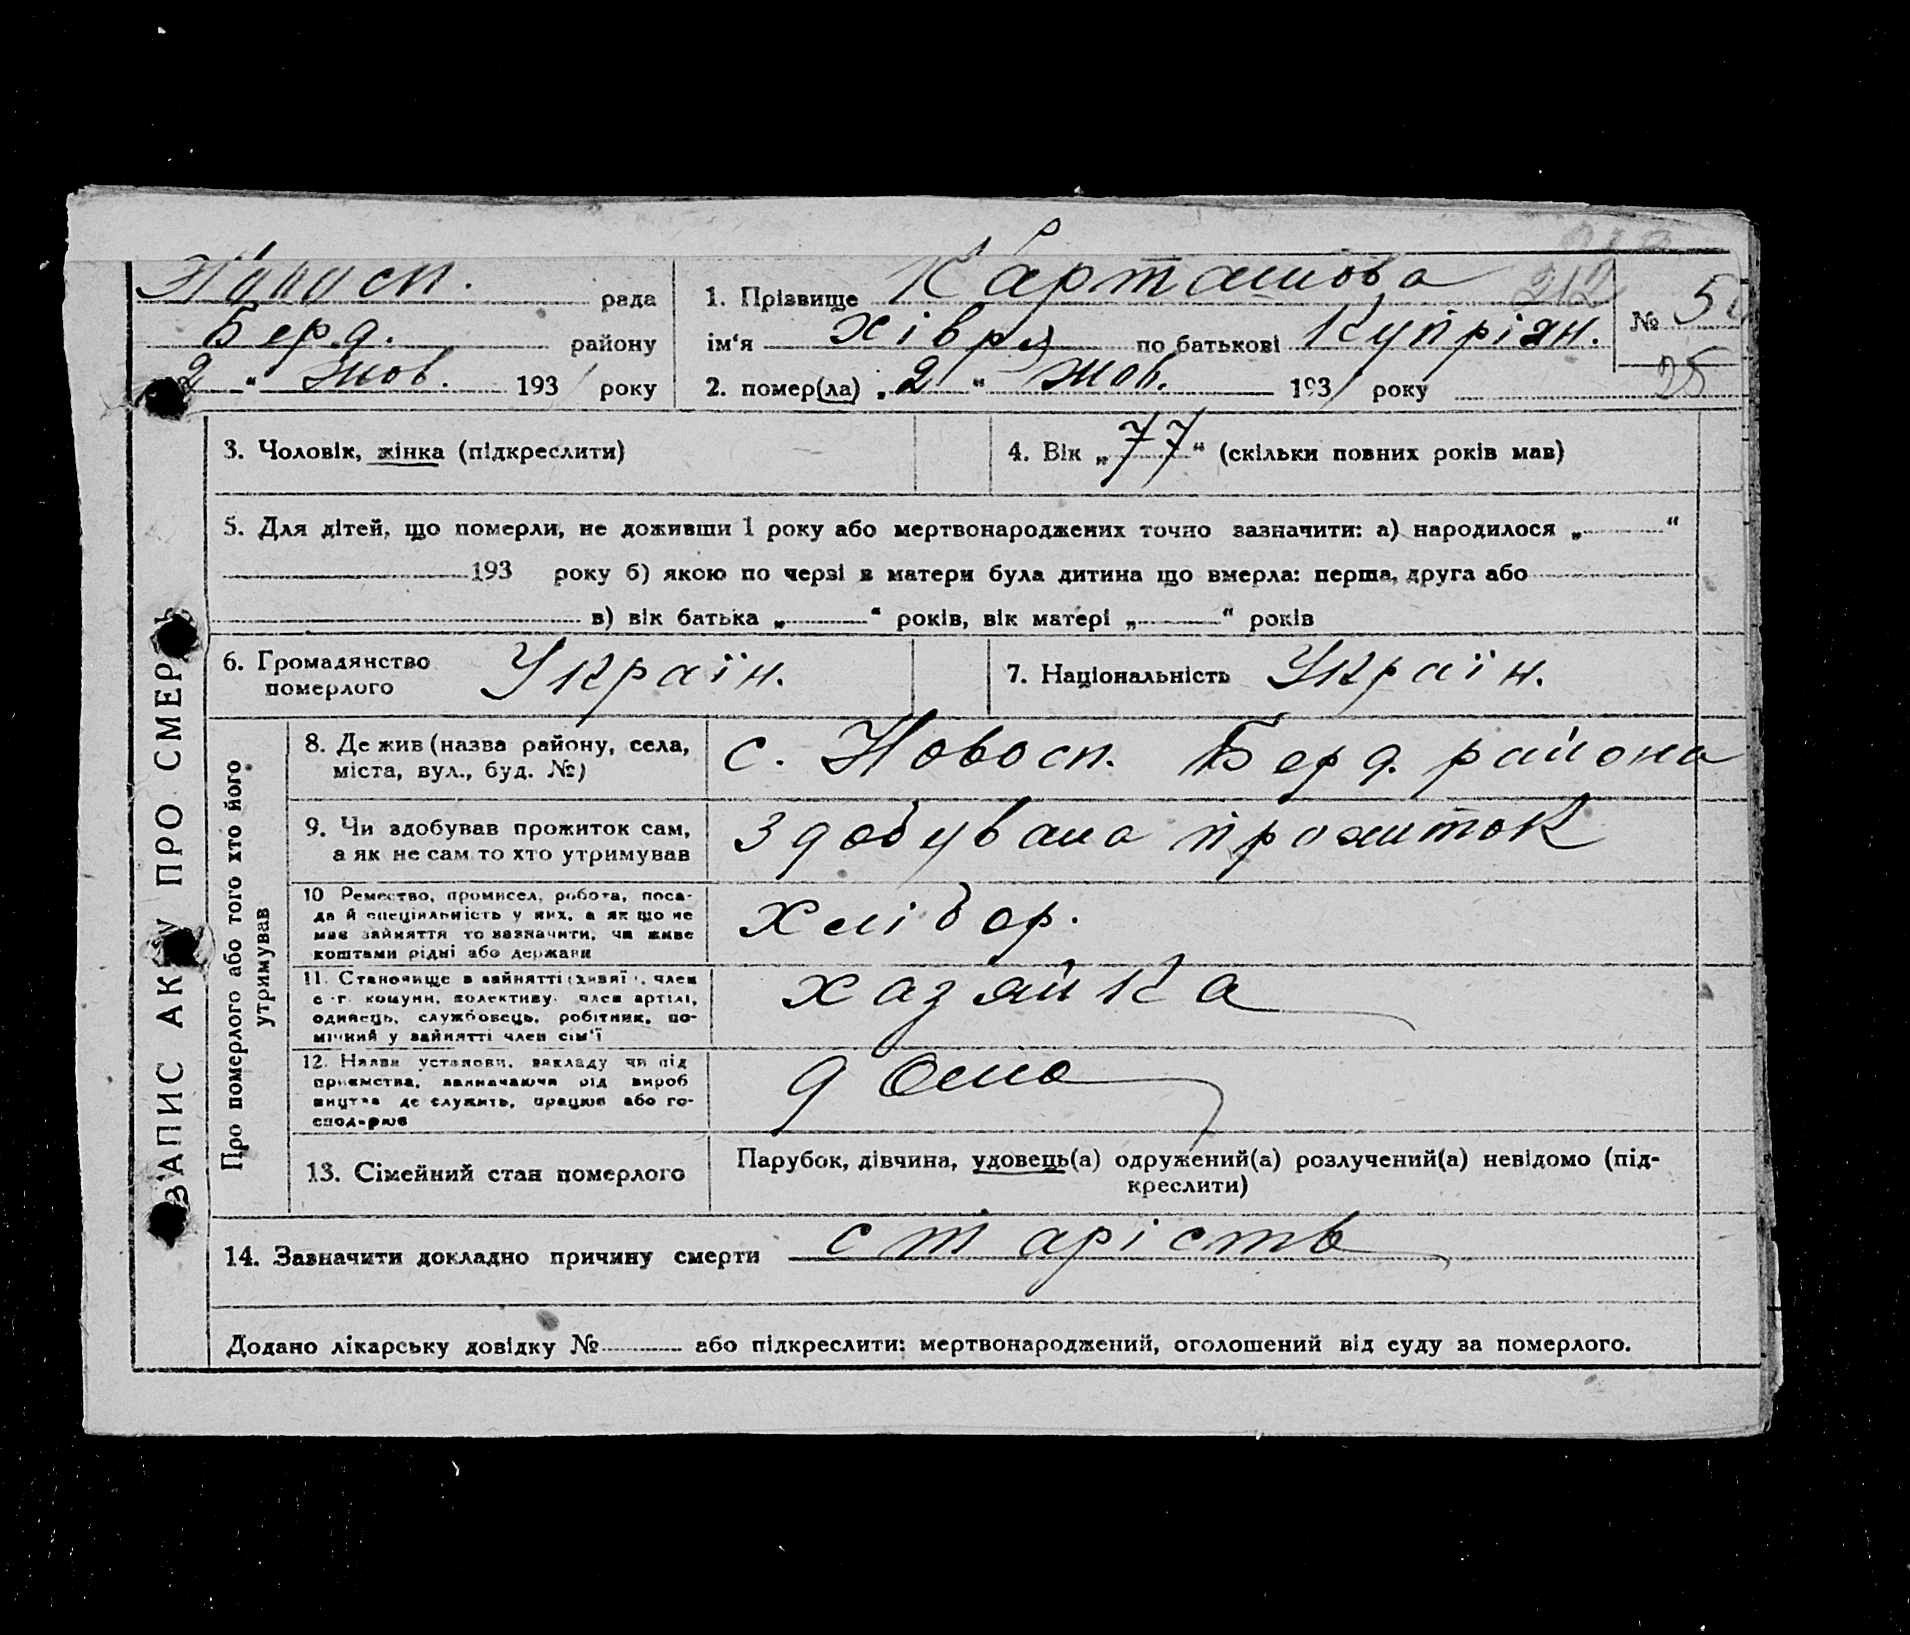 Новосп. рада
Берд. району
2 " Жов. 193 року
1. Прізвище Карташова
ім'я Хівря по батькові Купріян.
2. помер(ла) „ 2 " Жов. 1931 року
212
№ 5
25
ЗАПИС АКТУ ПРО СМЕРТЬ
3. Чоловік, жінка (підкреслити)
4. Вік „ 77 “ (скільки повних років мав)
5. Для дітей, що померли, не доживши 1 року або мертвонароджених точно зазначити: а) народилося „ “
193 року б) якою по черзі в матери була дитина що вмерла: перша, друга або
в) вік батька „ “ років, вік матері „ “ років
6. Громадянство
померлого
Україн.
7. Національність Україн.
Про померлого або того хто його
утримував
8. Де жив (назва району, села,
міста, вул., буд. №)
с. Новосп. Берд. района
9. Чи здобував прожиток сам,
а як не сам то хто утримував
Здобувала прожиток
10 Ремество, промисел, робота, поса-
да й спеціяльність у них, а як що не
має зайняття то зазначити, чи живе
коштами рідні або держави
Хлібор.
11. Становище в зайнятті (хазяї , член
с-г. комуни, колективу, член артілі,
одинець, службовець, робітник, по-
мічний у зайнятті член сім'ї
хазяйка
12. Назва установи, закладу чи під
приємства, зазначаючи рід вироб
ництва де служить, працює або го-
спод-рює
дома
13. Сімейний стан померлого
Парубок, дівчина, удовець(а) одружений(а) розлучений(а) невідомо (під-
креслити)
14. Зазначити докладно причину смерти старість
Додано лікарську довідку № або підкреслити: мертвонароджений, оголошений від суду за померлого.